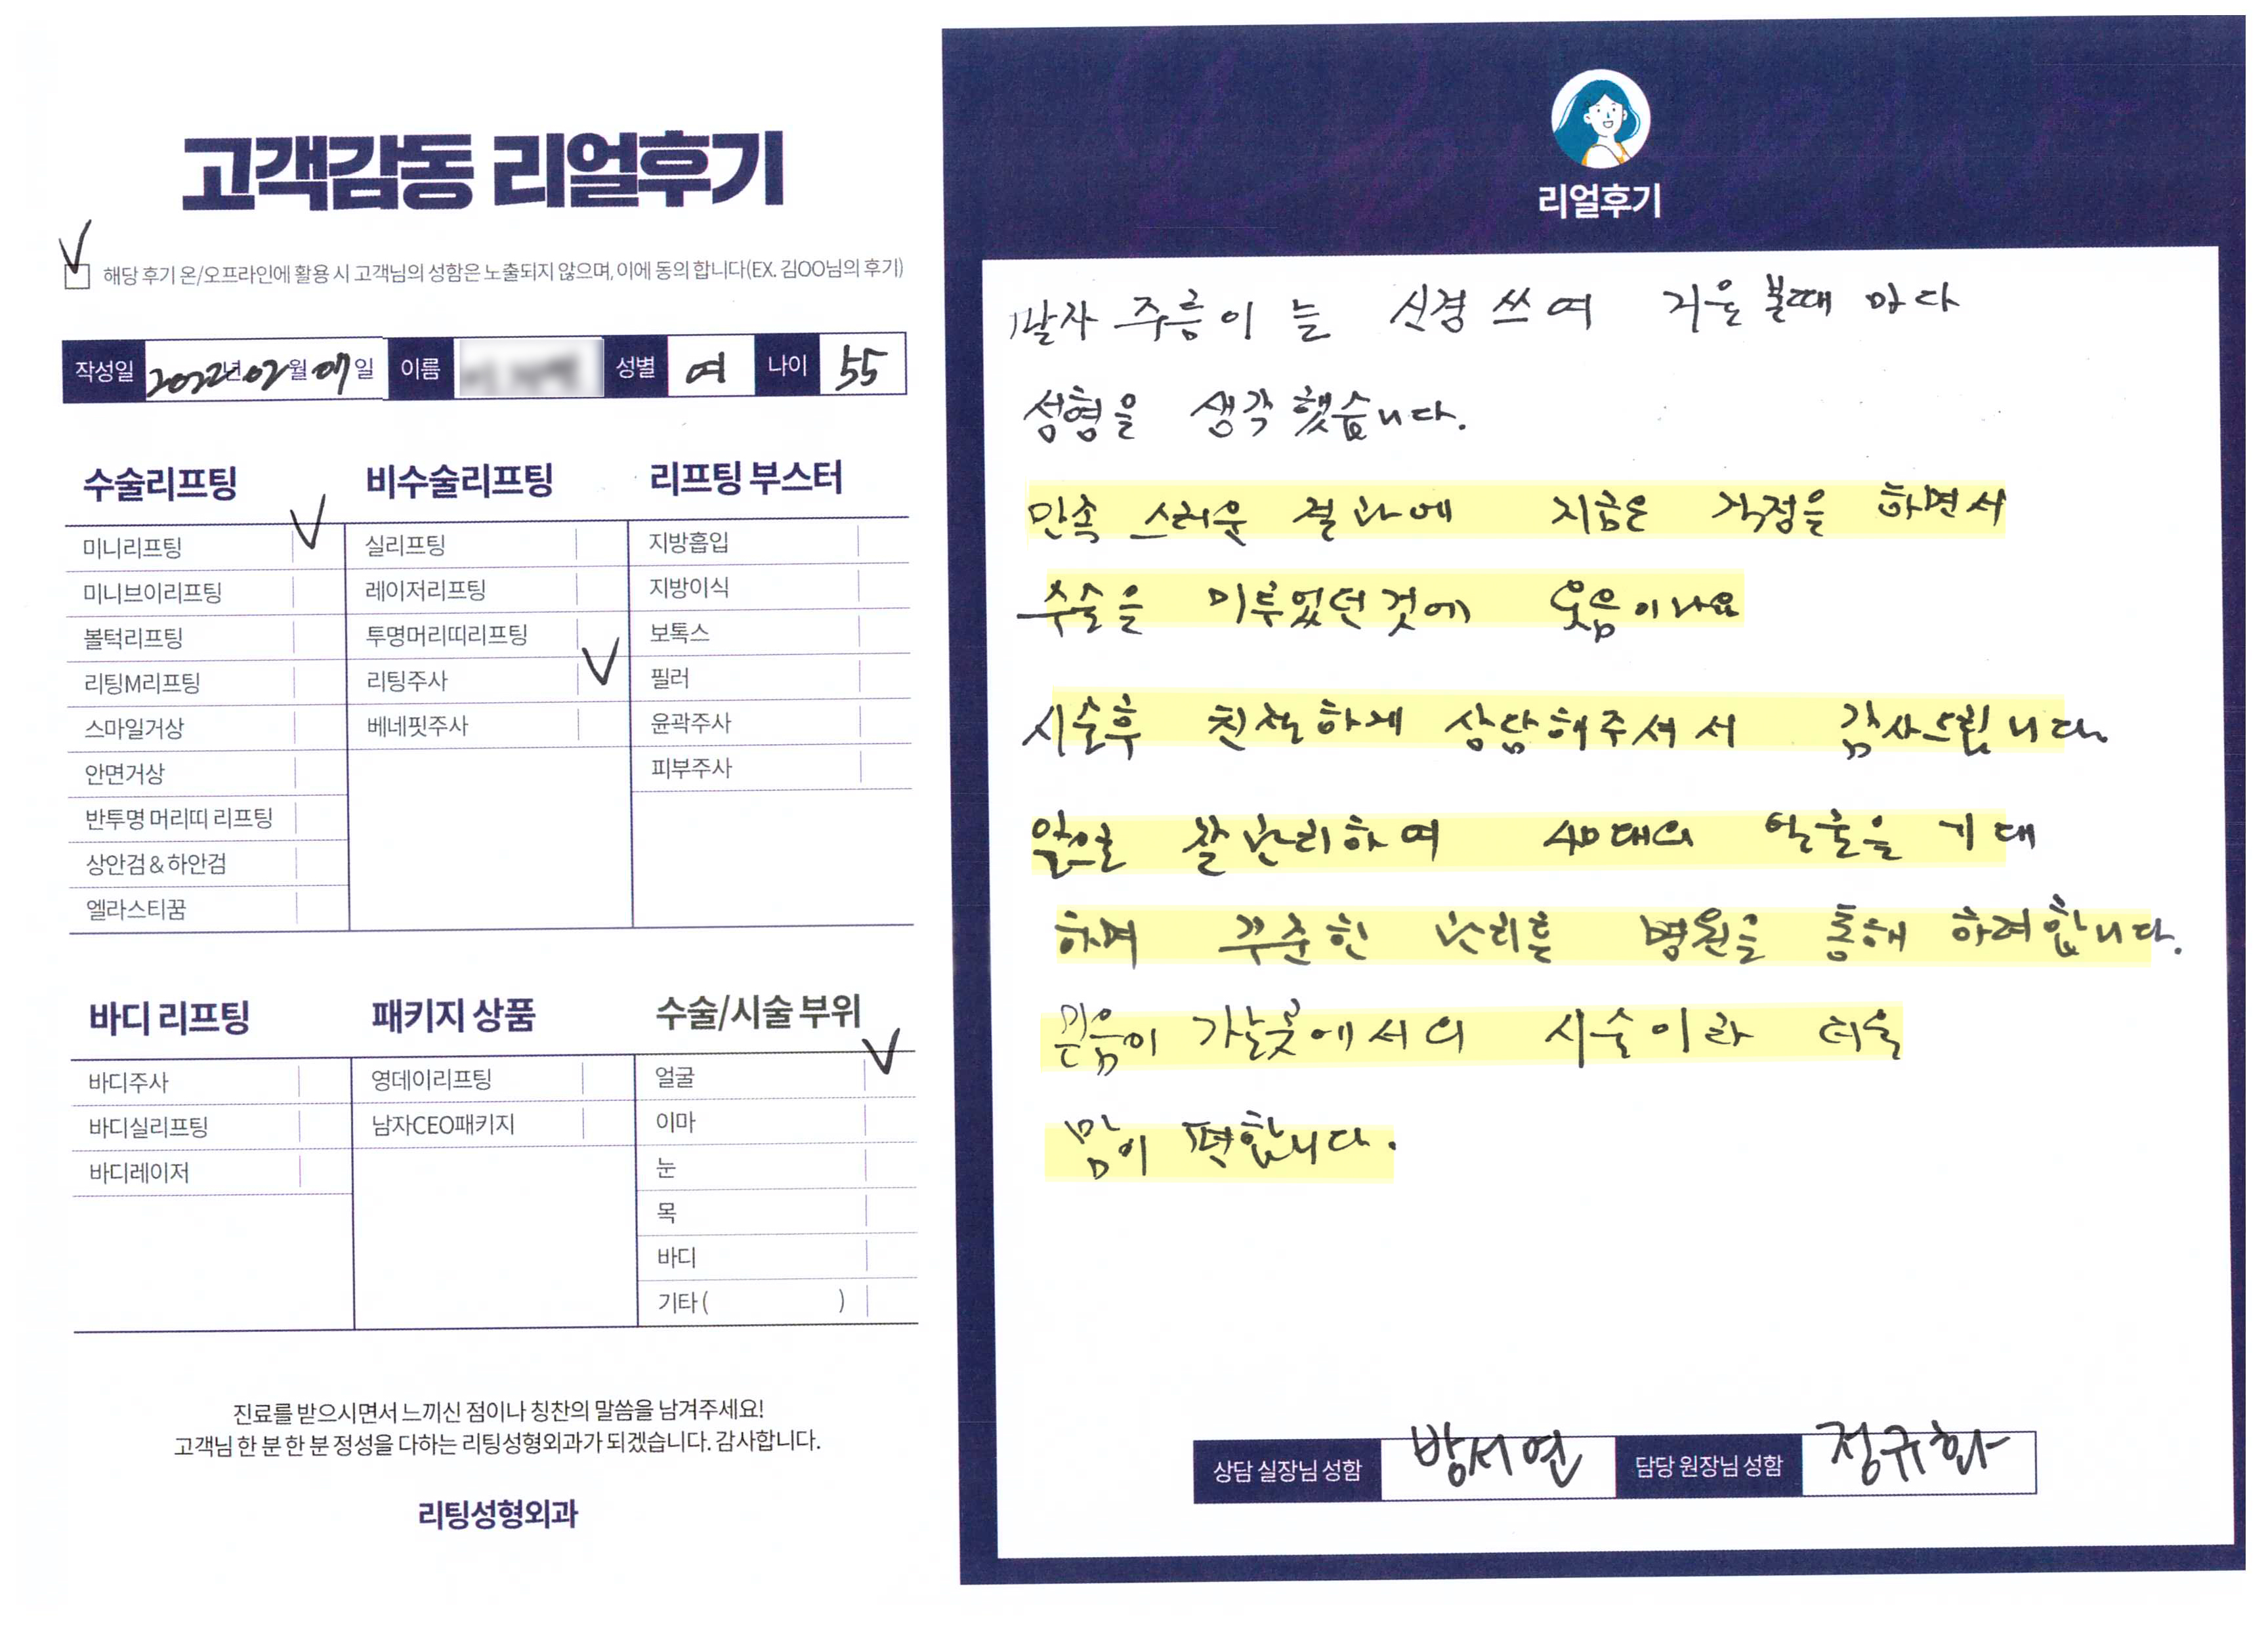 고객감동 리얼후기
해당 후기 온/오프라인에 활용 시 고객님의 성함은 노출되지 않으며, 이에 동의 합니다(EX. 김OO님의 후기)
작성일 2022년 02월 07일 이름 성별 여 나이 55
수술리프팅
미니리프팅
미니브이리프팅
볼턱리프팅
리팅M리프팅
스마일거상
안면거상
반투명 머리띠 리프팅
상안검 & 하안검
엘라스티꿈
비수술리프팅
실리프팅
레이저리프팅
투명머리띠리프팅
리팅주사
베네핏주사
리프팅 부스터
지방흡입
지방이식
보톡스
필러
윤곽주사
피부주사
바디 리프팅
바디주사
바디실리프팅
바디레이저
패키지 상품
영데이리프팅
남자CEO패키지
수술/시술 부위
얼굴
이마
눈
목
바디
기타 ( )
진료를 받으시면서 느끼신 점이나 칭찬의 말씀을 남겨주세요!
고객님 한 분 한 분 정성을 다하는 리팅성형외과가 되겠습니다. 감사합니다.
리팅성형외과
리얼후기
팔자 주름이 늘 신경 쓰여 거울 볼때 마다
성형을 생각 했습니다.
만족 스러운 결과에 지금은 걱정을 하면서
수술을 미루었던것에 웃음이나요
시술후 친절하게 상담해주셔서 감사드립니다.
앞으로 잘 관리하여 40대의 얼굴을 기대
하며 꾸준한 관리를 병원을 통해 하려합니다.
믿음이 가는곳에서의 시술이라 더욱
맘이 편합니다.
상담 실장님 성함 방서연 담당 원장님 성함 정규화